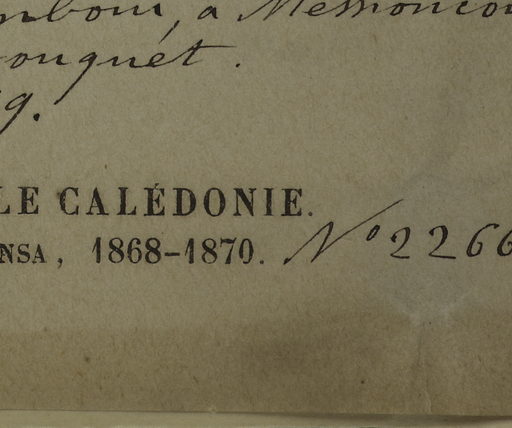 nboui, à Messioncou
ouquét.
9.
LE CALÉDONIE.
NSA, 1868–1870. N° 2266